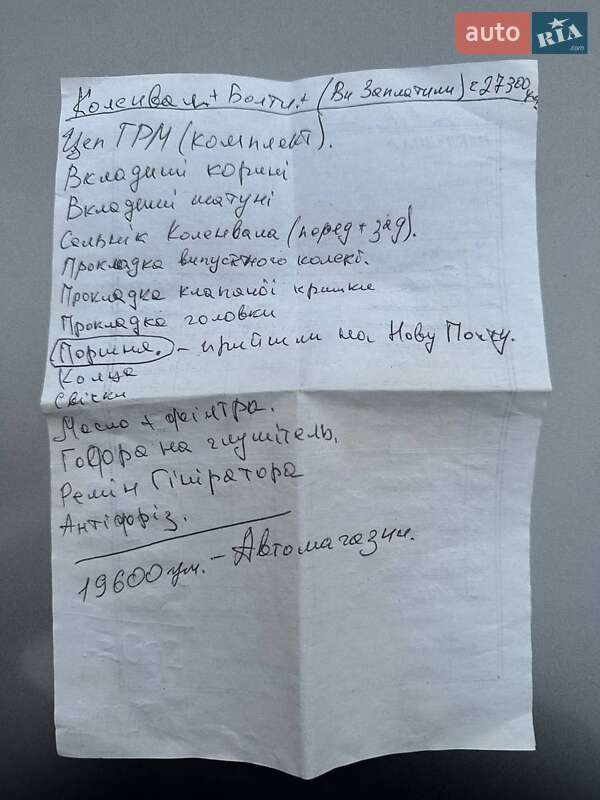 auto RIA .com
Коленвал + Болти + (Ви Заплатили) = 27300
Цеп ГРМ (комплект).
Вкладиші коріні
Вкладиші шатуні
Сальнік Коленвала (перед + зад).
Прокладка випускного колект.
Прокладка клапаної кришки
Прокладка головки
Поршня. - прийшли на Нову Почту.
Колца
Свічки
Масло + фільтра.
Гофра на глушітель.
Ремін Гініратора
Антіфріз.
19600 грн. - Автомагазин.